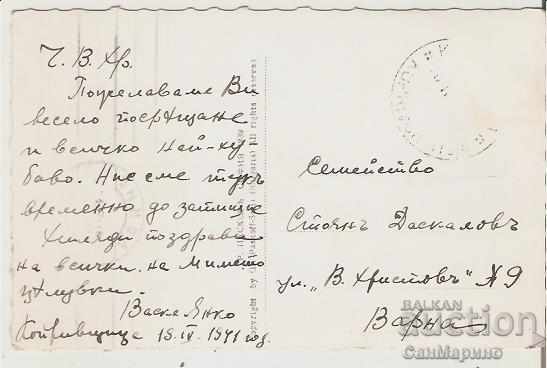 Ч. В. Хр.
Пожелаваме Ви
весело посрещане
и всичко най-ху
баво. Ние сме тукъ
временно до
Хиляди поздрави
на всички. на Мимето
цѣлувки.
Васка Янко
Копривщица 18.IV.1941 год.
Copyright by All rights reserved
Семейство
Стоянъ Даскаловъ
ул. „В. Христовъ" №9
Варна
BALKAN
auction
СанМарино